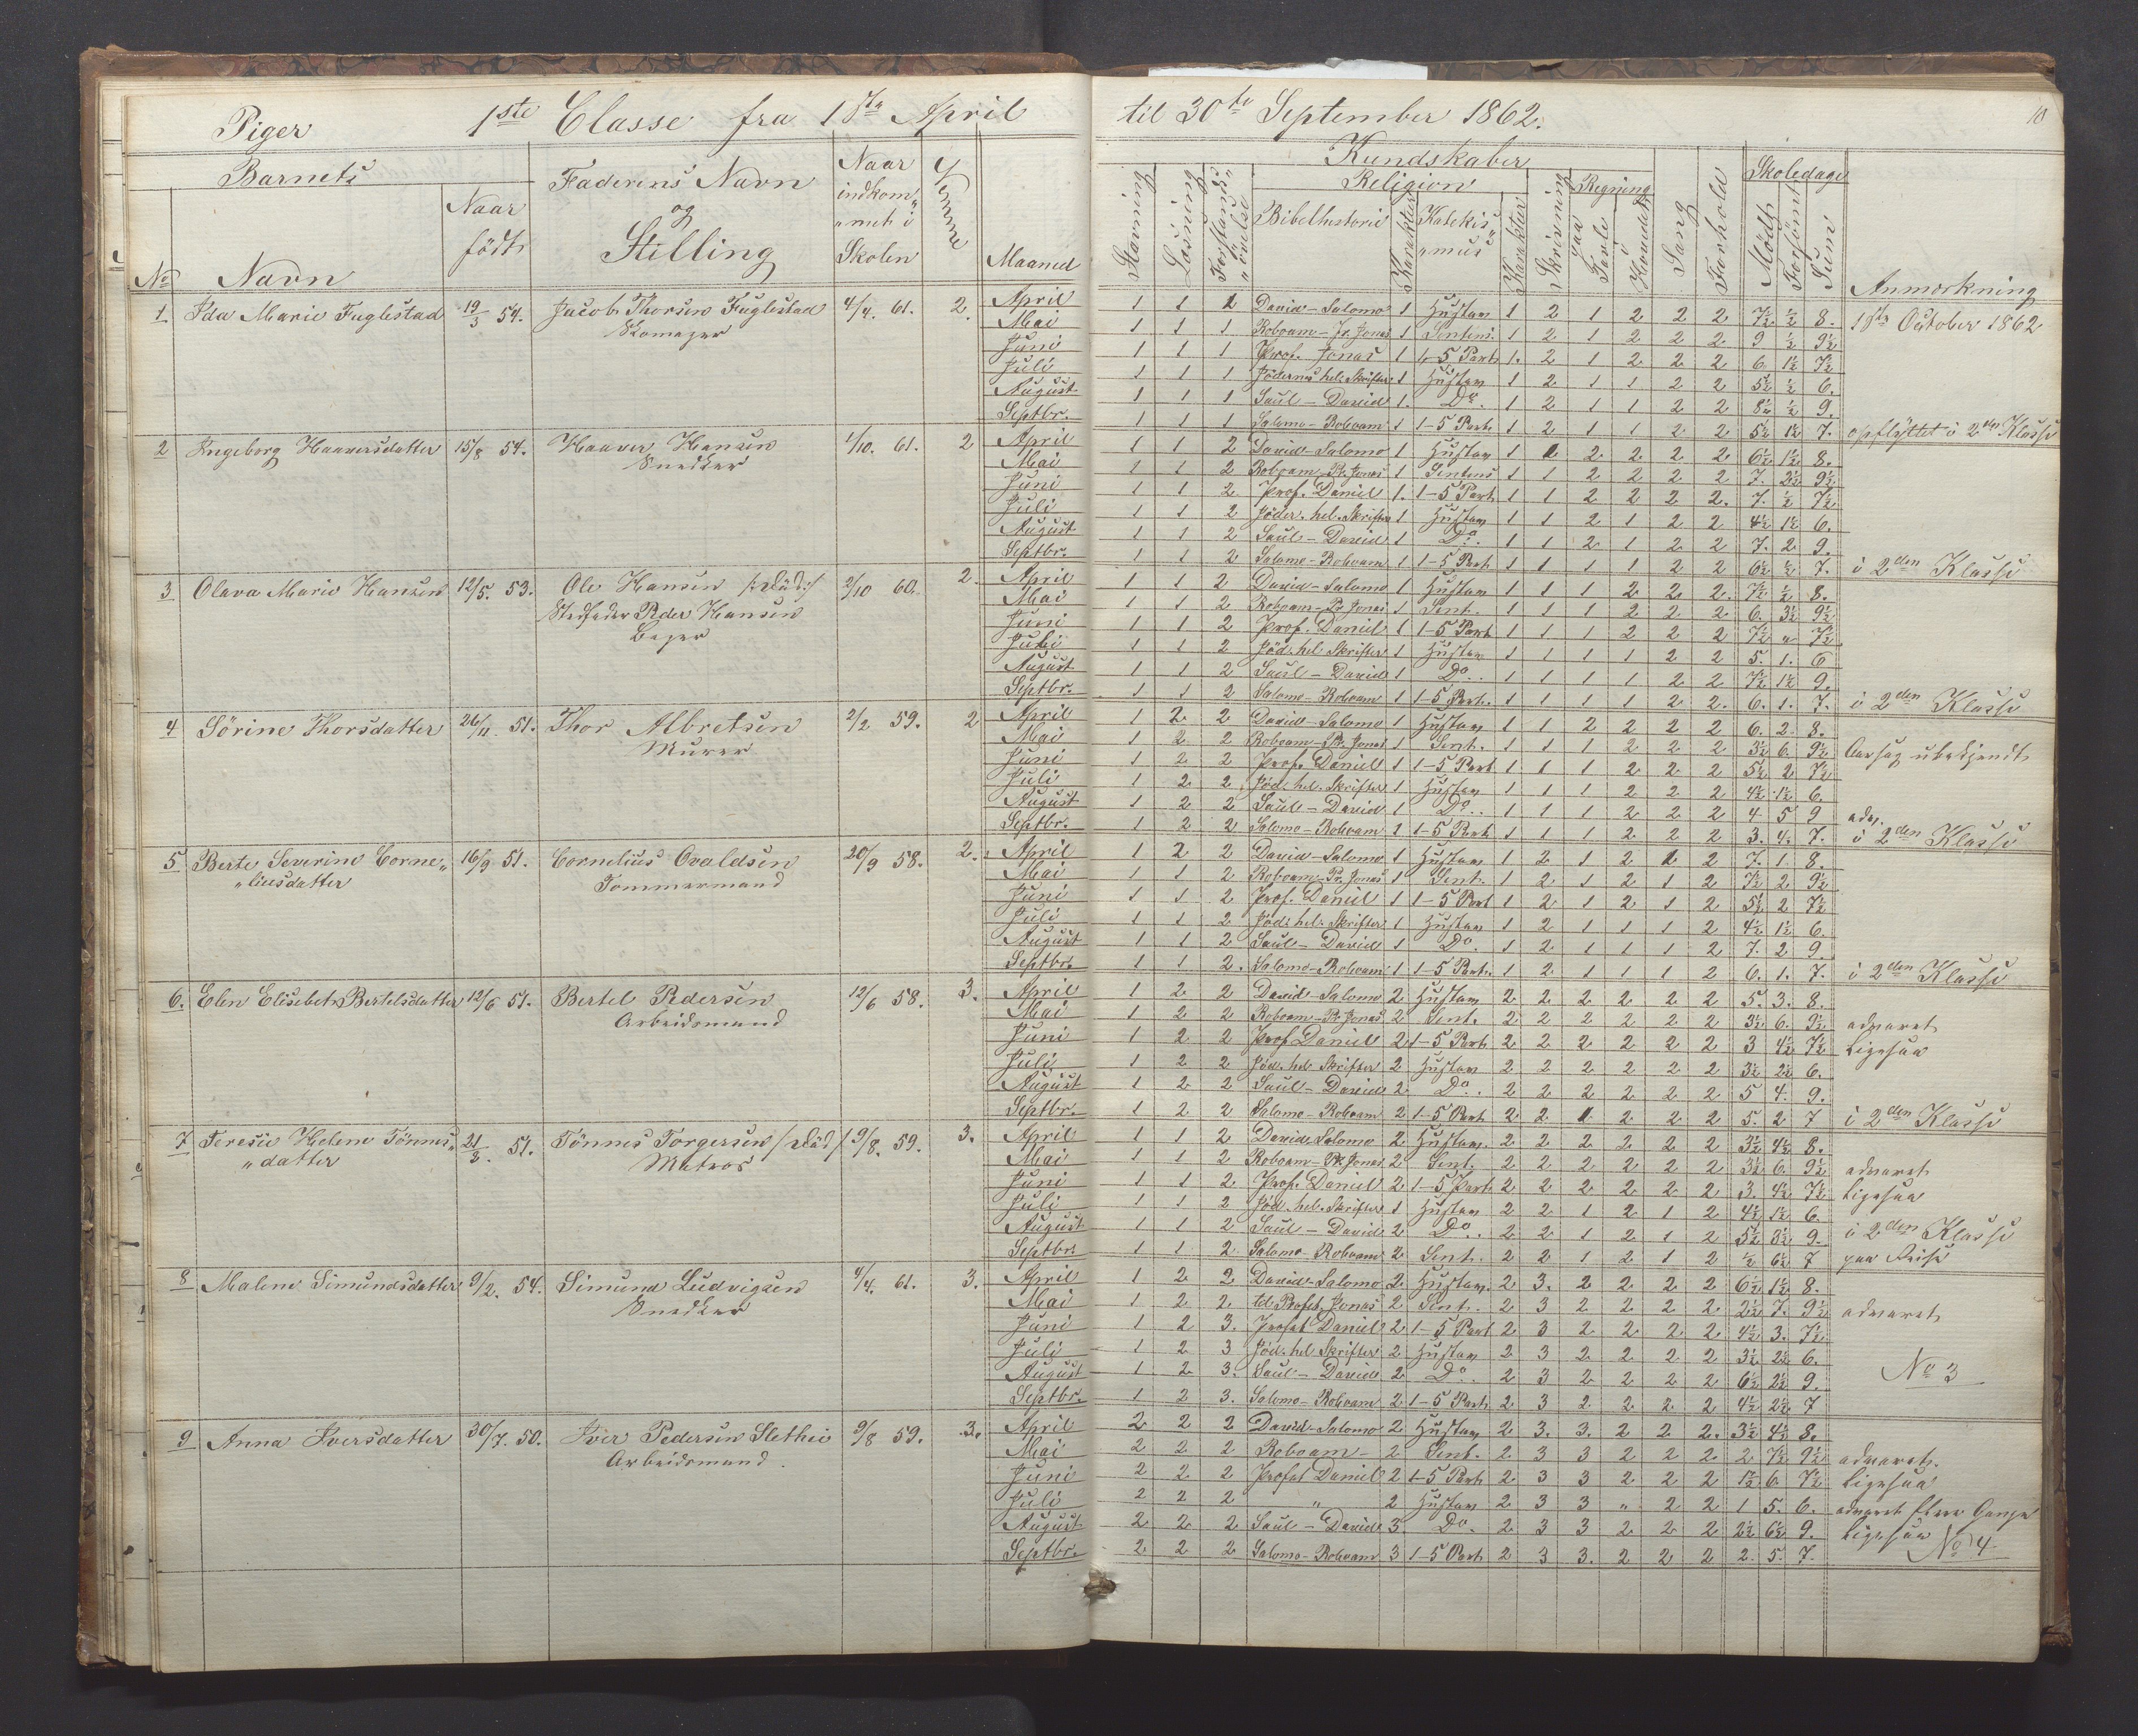 Piger 1ste Classe fra 1ste April til 30te September 1862. 10
Barnets
No Navn
Naar födt
Faderens Navn og Stilling
Naar indkom„ „met i Skolen
Evne
Maaned
Kundskaber
Stavning
Læsning
Forstands„ „övelse
Religion
Bibelhistorie
Karakter
Katekis„ „mus
Karakter
Skrivning
Regning
paa Tavle
i Hovedet
Sang
Forhold
Skoledage
Mödt
Forsömt
Sum
Anmærkning
1 Ida Marie Fuglestad 19/3 54. Jacob Thorsen Fuglestad 4/4. 61. 2. April 1 1 2 David-Salomo 1 Hustav 1 2 1 2 2 2 7½ ½ 8. 1ste October 1862
Skomager
Mai 1 1 1 Roboam-Pr. Jonas 1 Sentens. 1 2 1 2 2 2 9 ½ 9½
Juni 1 1 1 Prof. Jonas 1 1-5 Part 1. 2 1 2 2 2 6. 1½ 7½
Juli 1 1 1 Jödernes hel. Skrifter 1 Hustav 1 2 1 1 2 2 5½ ½ 6.
August 1 1 1 Saul-David 1. Do. 1 2 1 1 2 2 8½ ½ 9.
Septbr. 1 1 1 Salomo-Roboam 1 1-5 Part. 1 2 1 1 2 2 5½ 1½ 7. opflyttet i 2den Klasse
2 Ingeborg Haaversdatter 15/8 54. Haaver Hansen 1/10. 61. 2 April 1 1 2 David-Salomo 1 Hustav 1 1 2 2. 2 2. 6½ 1½ 8.
Snedker
Mai 1 1 2 Roboam-Pr. Jonas 1 Sentens 1 1 2 2 2 2 7. 2½ 9½
Juni 1 1 2 Prof. Daniel 1. 1-5 Part 1 1 2 2 2 2. 7. ½ 7½
Juli 1 1 2 Jöder. hel. Skrifter 1 Hustav 1 1 2 1 2 2 4½ 1½ 6.
August 1 1 2 Saul-David 1 Do. 1 1 2 1 2 2 7. 2 9.
Septbr. 1 1 2 Salomo-Roboam 1 1-5 Part 1 1 1 1 2 2 6½ ½ 7. i 2den Klasse
3 Olava Marie Hansen 12/5. 53. Ole Hansen /:död:/ 2/10 60. 2. April 1 1 2 David-Salomo 1 Hustav 1 1 1 2 2 2. 7½ ½ 8.
Stedfader Peder Hansen
Bager
Mai 1 1 2 Roboam-Pr. Jonas 1 Sent. 1 1 1 2 2 2 6. 3½ 9½
Juni 1 1 2 Prof. Daniel 1 1-5 Part 1 1 1 2 2 2 7½ „ 7½
Juli 1 1 2 Jöd: hel Skrifter 1 Hustav 1 1 1 1 2 2 5. 1. 6
August 1 1 2 Saul-David 1 Do. 1 1 1 1 2 2 7½ 1½ 9.
Septbr. 1 1 2 Salomo-Roboam 1 1-5 Part. 1 1 1 1 2 2. 6. 1. 7. i 2den Klasse
4 Sörine Thorsdatter 26/11. 51. Thor Albretsen 2/2 59. 2 April 1 2 2 David-Salomo 1 Hustav 1 1 2 2 2 2 6. 2. 8.
Murer
Mai 1 2 2 Roboam-Pr. Jonas 1 Sent. 1 1 1 2 2 2 3½ 6. 9½ Aarsag ubekjendt
Juni 1 2 2 Prof. Daniel 1 1-5 Part 1 1 1 2 2 2 5½ 2 7½
Juli 1 2 2 Jöd: hel. Skrifter 1 Hustav 1 1 1 2 2 2 4½ 1½ 6.
August 1 2 2 Saul-David 1 Do. 1 1 1 2 2 2 4 5 9 adv.
Septbr. 1 2 2 Salomo-Roboam 1 1-5 Part. 1 1 1 2 2 2 3. 4. 7. i 2den Klasse
5 Berte Severine Corne„ 16/9 51. Cornelius Ovaldsen 20/9 58. 2. April 1 2 2 David-Salomo 1 Hustav 1 2 1 2 1 2 7. 1 8.
„liusdatter Tømmermand
Mai 1 1 2 Roboam-Pr. Jonas 1 Sent. 1 2 1 2 1 2 7½ 2 9½
Juni 1 1 2 Prof. Daniel 1 1-5 Part 1 2 1 2 1 2 5½ 2 7½
Juli 1 1 2 Jöd: hel. Skrifter 1 Hustav 1 2 1 1 1 2 4½ 1½ 6.
August 1 1 2 Saul-David 1 Do. 1 2 1 1 1 2 7. 2 9.
Septbr. 1 1 2. Salomo-Roboam 1 1-5 Part. 1 2 1 1 1 2 6. 1. 7. i 2den Klasse
6. Elen Elisebet Bertelsdatter 12/6 51. Bertel Pedersen 12/6 58. 3. April 1 2 2 David-Salomo 2 Hustav 2 2 2 2 2 2 5. 3. 8.
Arbeidsmand
Mai 1 2 2 Roboam-Pr. Jonas 2 Sent. 2 2 2 2 2 2 3½ 6. 9½ advaret
Juni 1 2 2 Prof Daniel 2 1-5 Part 2 2 2 2 2 2 3 4½ 7½ Ligesaa
Juli 1 2 2 Jöd. hel Skrifter 2 Hustav 2 2 2 2 2 2 3½ 2½ 6.
August 1 2 2 Saul-David 2 Do. 2 2 2 2 2 2 5 4. 9.
Septbr. 1 2 2 Salomo-Roboam 2 1-5 Part 2 2 1 2 2 2 5. 2 7 i 2den Klasse
7 Teresie Helene Tönnes„ 21/3. 51. Tönnes Torgersen /:död/ 19/8. 59. 3. April 1 1 2 David Salomo 2 Hustav. 2 2 2 2 2 2 3½ 4½ 8.
„datter Matros
Mai 1 1 2 Roboam-Pr. Jonas 2 Sent. 2 2 2 2 2 2 3½ 6. 9½ advaret
Juni 1 1 2 Prof. Daniel 2 1-5 Part. 2 2 2 2 2 2 3. 4½ 7½ Ligesaa
Juli 1 1 2 Jöd. hel. Skrifter 1 Hustav 2 2 1 2 1 2 4½ 1½ 6.
August 1 1 2 Saul-David 2 Do. 2 2 1 2 1 2 5½ 3½ 9. i 2den Klasse
Septbr. 1 1 2 Salomo-Roboam 2 Sent. 2 2 1 2 1 2 ½ 6½ 7 paa Reise
8 Malene Simundsdatter 9/2. 54. Simund Ludvigsen 4/4. 61. 3. April 1 2 2 David-Salomo 2 Hustav. 2 3. 2 2 2 2 6½ 1½ 8.
Snedker
Mai 1 2 2. til Profet. Jonas 2 Sent. 2 3 2 2 2 2 2½ 7. 9½ advaret
Juni 1 2 3. Profet Daniel 2 1-5 Part 2 3 2 2 2 2. 4½ 3. 7½
Juli 1 2 3 Jöd: hel Skrifter 2 Hustav 2 3 2 2 2 2 3½ 2½ 6.
August 1 2 3. Saul-David 2 Do. 2 3 2 2 2 2 6½ 2½ 9. No 3
Septbr. 1 2 3. Salomo-Roboam 2 1-5 Part 2 3 2 2 2 2 4½ 2½ 7
9 Anna Iversdatter 30/7. 50. Iver Pedersen Slethei 9/8 59. 3. April 2 2 2 David-Salomo 2 Hustav 2 3. 3. 2 2 2. 3½ 4½ 8.
Arbeidsmand.
Mai 2 2 2 Roboam- 2 Sent. 2 3 3 2 2 2 2 7½ 9½ advaret.
Juni 2 2 2 Profet Daniel 2 1-5 Part 2 3 3 2 2 2 1½ 6. 7½ Ligesaa
Juli 2 2 2 „ 2 Hustav 2 3 3 „ 2 2 1 5. 6. advaret flere Gange
August 2 2 2 Saul-David 3. Do. 2 3 3 2 2 2 2½ 6½ 9. Ligesaa
Septbr. 2 2 2 Salomo-Roboam 3 1-5 Part 2 3 3. 2 2 2 2. 5. 7. No 4